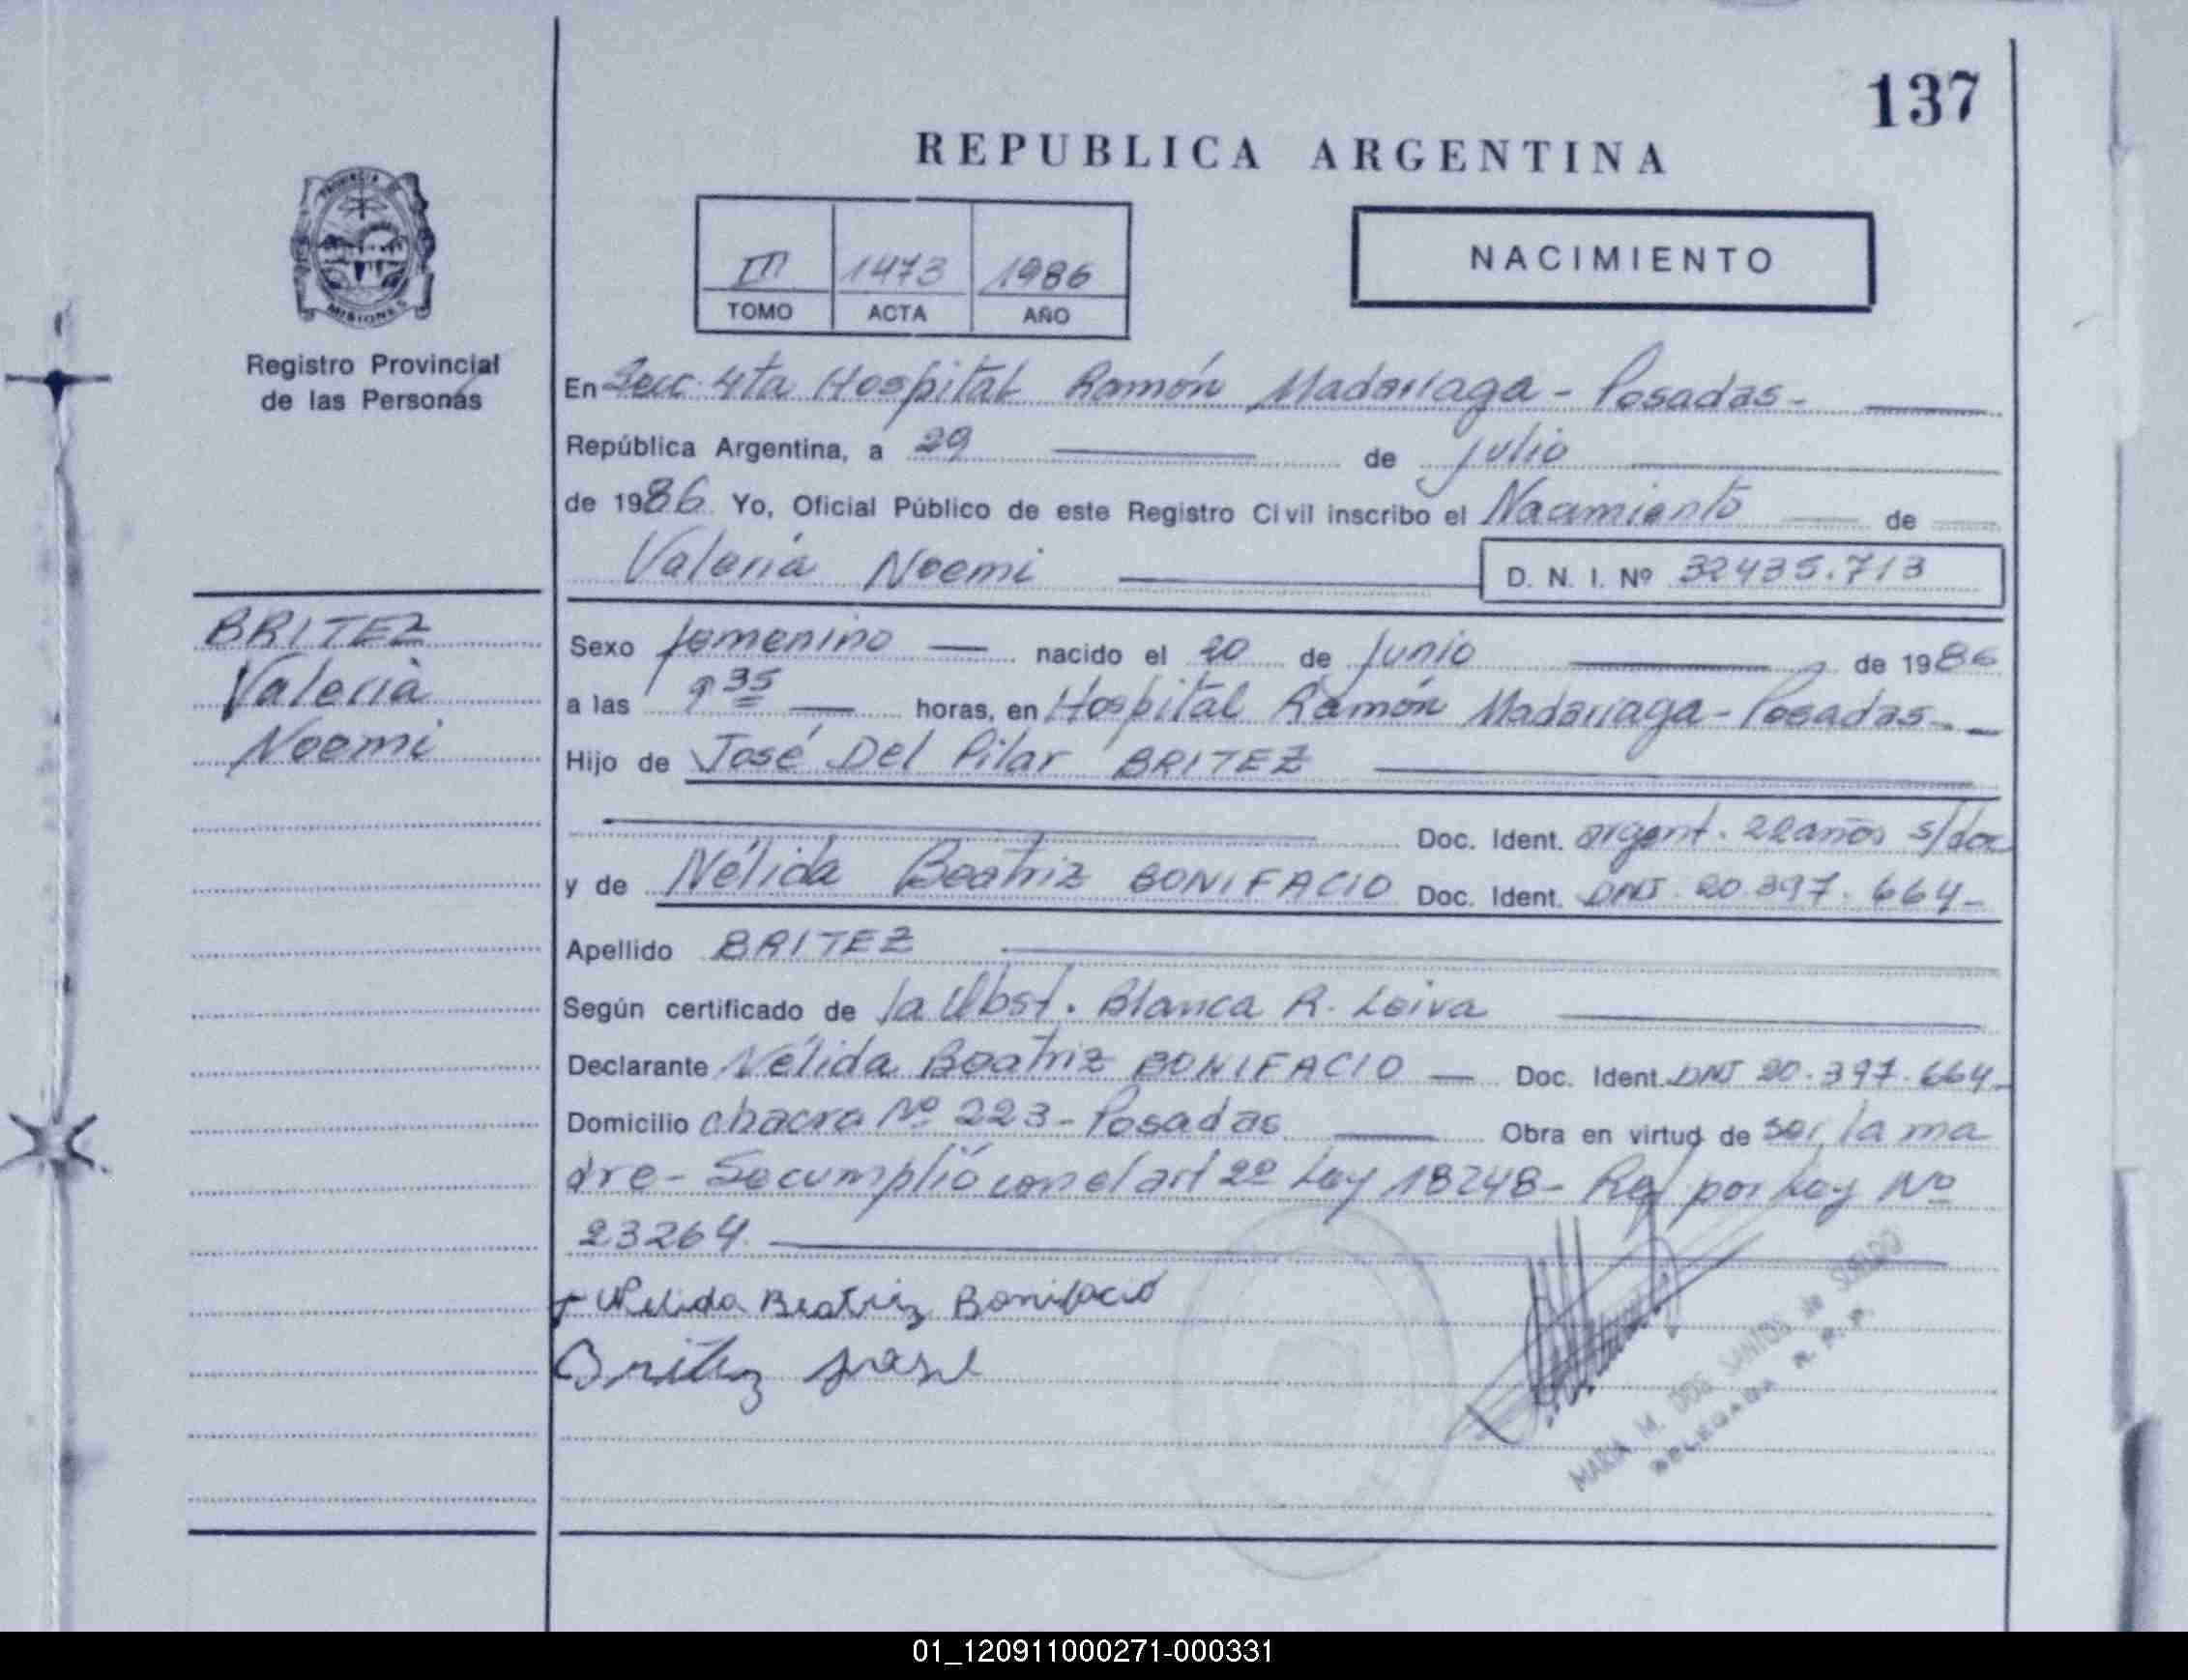 137
REPUBLICA ARGENTINA
PROVINCIA DE
MISIONES
III 1473 1986
TOMO ACTA AÑO
NACIMIENTO
Registro Provincial
de las Personas
En Secc 4ta Hospital Ramón Madariaga - Posadas -
República Argentina, a 29 de Julio
de 1986 Yo, Oficial Público de este Registro Civil inscribo el Nacimiento de
Valeria Noemi D. N. I. Nº 32435.713
BRITEZ
Valeria
Noemi
Sexo femenino nacido el 20 de Junio de 1986
a las 9 35 horas, en Hospital Ramón Madariaga - Posadas -
Hijo de José Del Pilar BRITEZ
Doc. Ident. argent. 22 años s/doc
y de Nélida Beatriz BONIFACIO Doc. Ident. DNI 20.397.664-
Apellido BRITEZ
Según certificado de la Obst. Blanca R. Leiva
Declarante Nélida Beatriz BONIFACIO Doc. Ident. DNI 20.397.664-
Domicilio chacra Nº 223 - Posadas Obra en virtud de ser la ma
dre - Se cumplió con el art 2º Ley 18248 - Ref por Ley Nº
23264.
Nelida Beatriz Bonifacio
Britez José
MARIA M. DOS SANTOS de SUELDO
DELEGADA R. P. P.
01_120911000271-000331